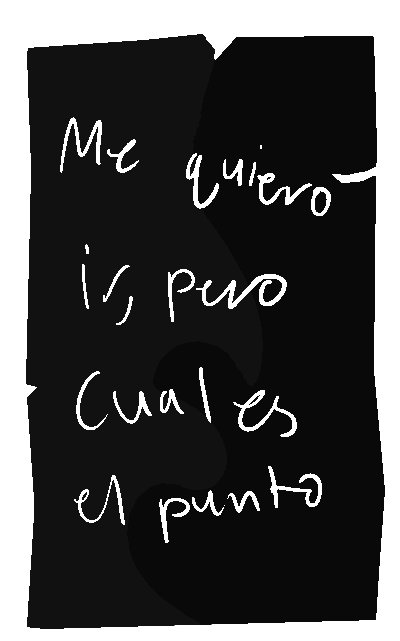 Me quiero
ir, pero
Cual es
el punto